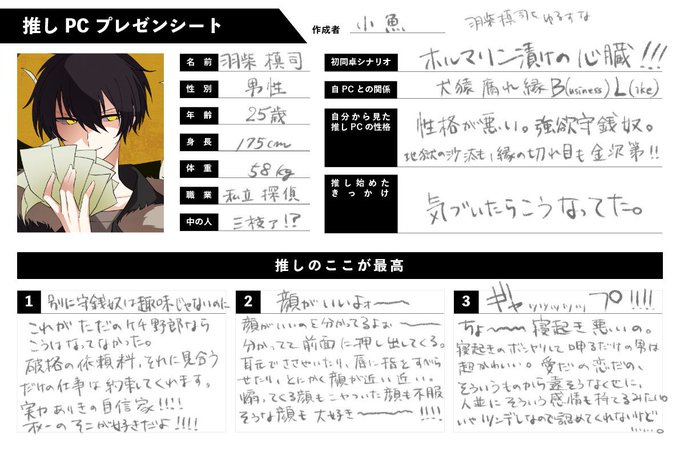 推しPCプレゼンシート
作成者 小魚
羽柴槙司をゆるすな
名前 羽柴槙司
性別 男性
年齢 25歳
身長 175cm
体重 58kg
職業 私立探偵
中の人 三枝了!?
初同卓シナリオ ホルマリン漬けの心臓!!!
自PCとの関係 犬猿腐れ縁B(usiness)L(ike)
自分から見た
推しPCの性格
性格が悪い。強欲守銭奴。
地獄の沙汰も、縁の切れ目も金沢第!!
推し始めた
きっかけ
気づいたらこうなってた。
推しのここが最高
1 別に守銭奴は趣味じゃないのに
これがただのケチ野郎なら
こうはなってなかった。
破格の依頼料、それに見合う
だけの仕事は約束してくれます。
実力ありきの自信家!!!!
そこが好きだよ!!!!
2 顔がいいよォ〜〜
顔がいいのを分かってるよぉ〜
分かってて前面に押し出してくる。
耳元でささやいたり、唇に指をすべら
せたり、とにかく顔が近い近い。
煽ってくる顔もニヤついた顔も不服
そうな顔も大好き〜〜!!!!
3 ギャッッッップ!!!!
ちょ〜〜寝起き悪いの。
寝起きのボンヤリして呻るだけの男は
超かわいい。愛だの恋だの、
そういうものから露そうなくせに、
人並にそういう感情も持てるみたいの
いやツンデレなので認めてくれないけど